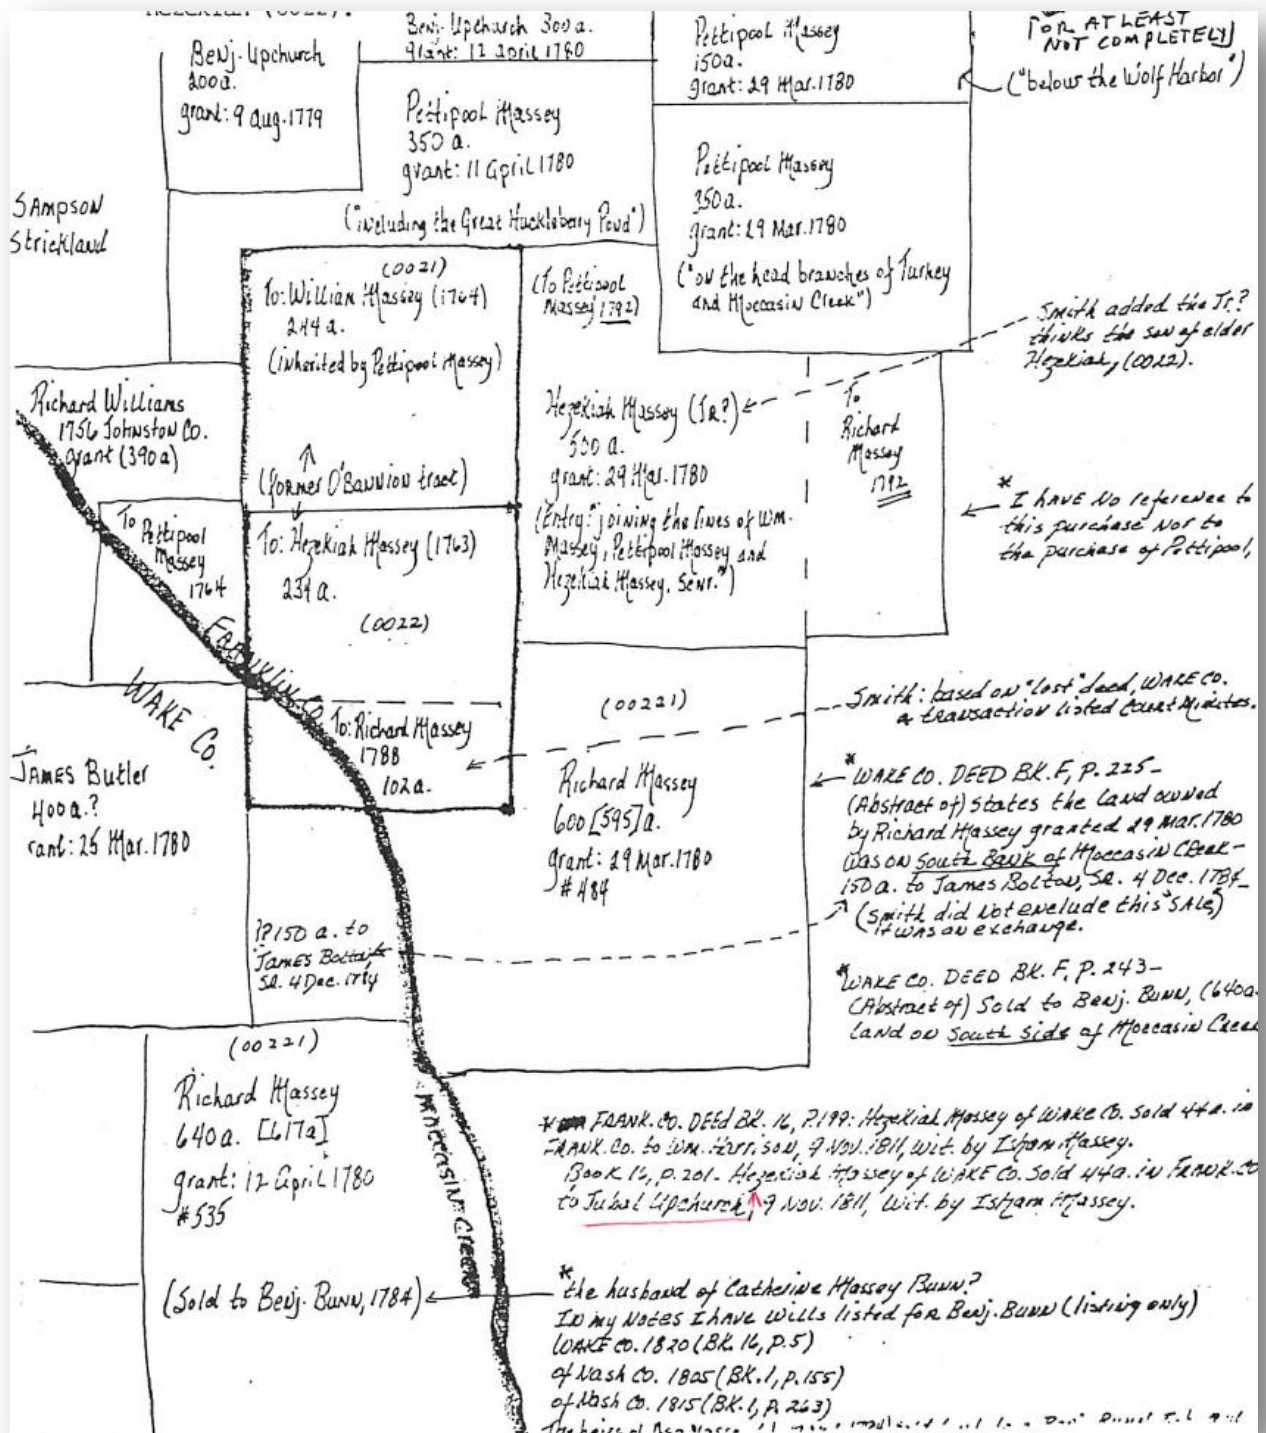 Benj. Upchurch
200a.
grant: 9 Aug. 1779
Benj. Upchurch 300a.
grant: 12 April 1780
Pettipool Massey
350 a.
grant: 11 April 1780
("including the Great Huckleberry Pond")
Pettipool Massey
150a.
grant: 29 Mar. 1780
[OR AT LEAST
NOT COMPLETELY]
("below the Wolf Harbor")
Pettipool Massey
350a.
grant: 29 Mar. 1780
("on the head branches of Turkey
and Moccasin Creek")
SAMPSON
Strickland
(0021)
To: William Massey (1764)
244a.
(inherited by Pettipool Massey)
(former O'Bannion tract)
(To Pettipool
Massey 1792)
Smith added the Jr.?
thinks the son of older
Hezekiah, (0022).
Richard Williams
1756 Johnston Co.
grant (390a)
Hezekiah Massey (JR?)
500 a.
grant: 29 Mar. 1780
(Entry: "joining the lines of Wm.
Massey, Pettipool Massey and
Hezekiah Massey, Senr.")
To
Richard
Massey
1792
* I HAVE NO reference to
this purchase NOR to
the purchase of Pettipool,
To
Pettipool
Massey
1764
To: Hezekiah Massey (1763)
234a.
(0022)
FRANKLIN CO.
WAKE CO.
To: Richard Massey
1788
102a.
Smith: based on "lost" deed, WAKE CO.
a transaction listed Court Minutes.
JAMES Butler
400a.?
rant: 25 Mar. 1780
(00221)
Richard Massey
600 [595]a.
grant: 29 Mar. 1780
#484
* WAKE CO. DEED BK. F, P. 225-
(Abstract of) States the land owned
by Richard Massey granted 29 Mar. 1780
was on South Bank of Moccasin Creek-
150 a. to James Bolton, SR. 4 Dec. 1784-
(Smith did not exclude this "SALE")
it was an exchange.
?? 150 a. to
JAMES Bolton,
SR. 4 Dec. 1784
* WAKE CO. DEED BK. F, P. 243-
(Abstract of) Sold to Benj. BUNN, (640a.
land on South Side of Moccasin Creek
(00221)
Richard Massey
640a. [617a]
grant: 12 April 1780
#535
(Sold to Benj. BUNN, 1784)
Moccasin Creek
* FRANK. CO. DEED BK. 16, P. 199: Hezekiah Massey of WAKE CO. sold 44a. in
FRANK. CO. to WM. Harrison, 9 NOV. 1811, wit. by Isham Massey.
BOOK 16, p. 201- Hezekiah Massey of WAKE CO. Sold 44a. in FRANK. CO
to Jubal Upchurch, 9 NOV. 1811, wit. by Isham Massey.
* the husband of Catherine Massey Bunn?
IN my NOTES I have Wills listed for Benj. BUNN (listing only)
WAKE CO. 1820 (BK. 16, P. 5)
of Nash CO. 1805 (BK. 1, P. 155)
of Nash CO. 1815 (BK. 1, P. 263)